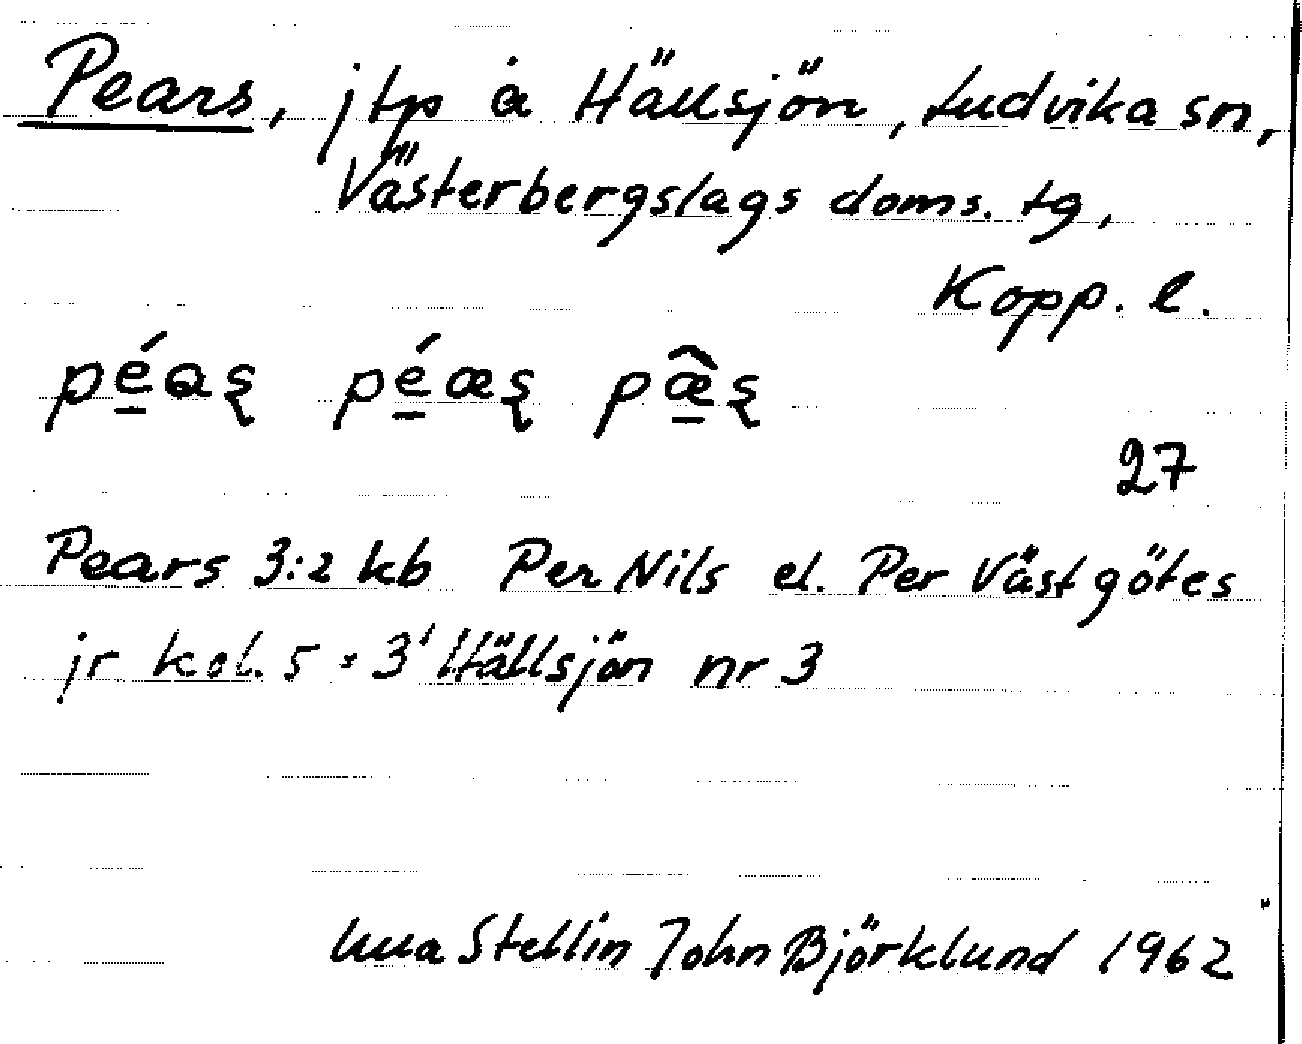 Pears, jtp å Hällsjön, Ludvika sn,
Västerbergslags doms. tg,
Kopp. l.
péas péæs pæ̂s
27
Pears 3:2 kb Per Nils el. Per Västgötes
jr kol. 5 = 3' Hällsjön nr 3
Stellin John Björklund 1962